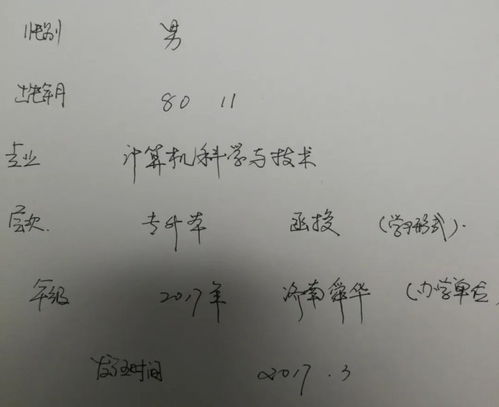 性别 男
出生年月 80 11
专业 计算机科学与技术
层次. 专升本 函授 (学习形式).
年级 2017年 济南舜华 (办学单位
发证时间 2017.3